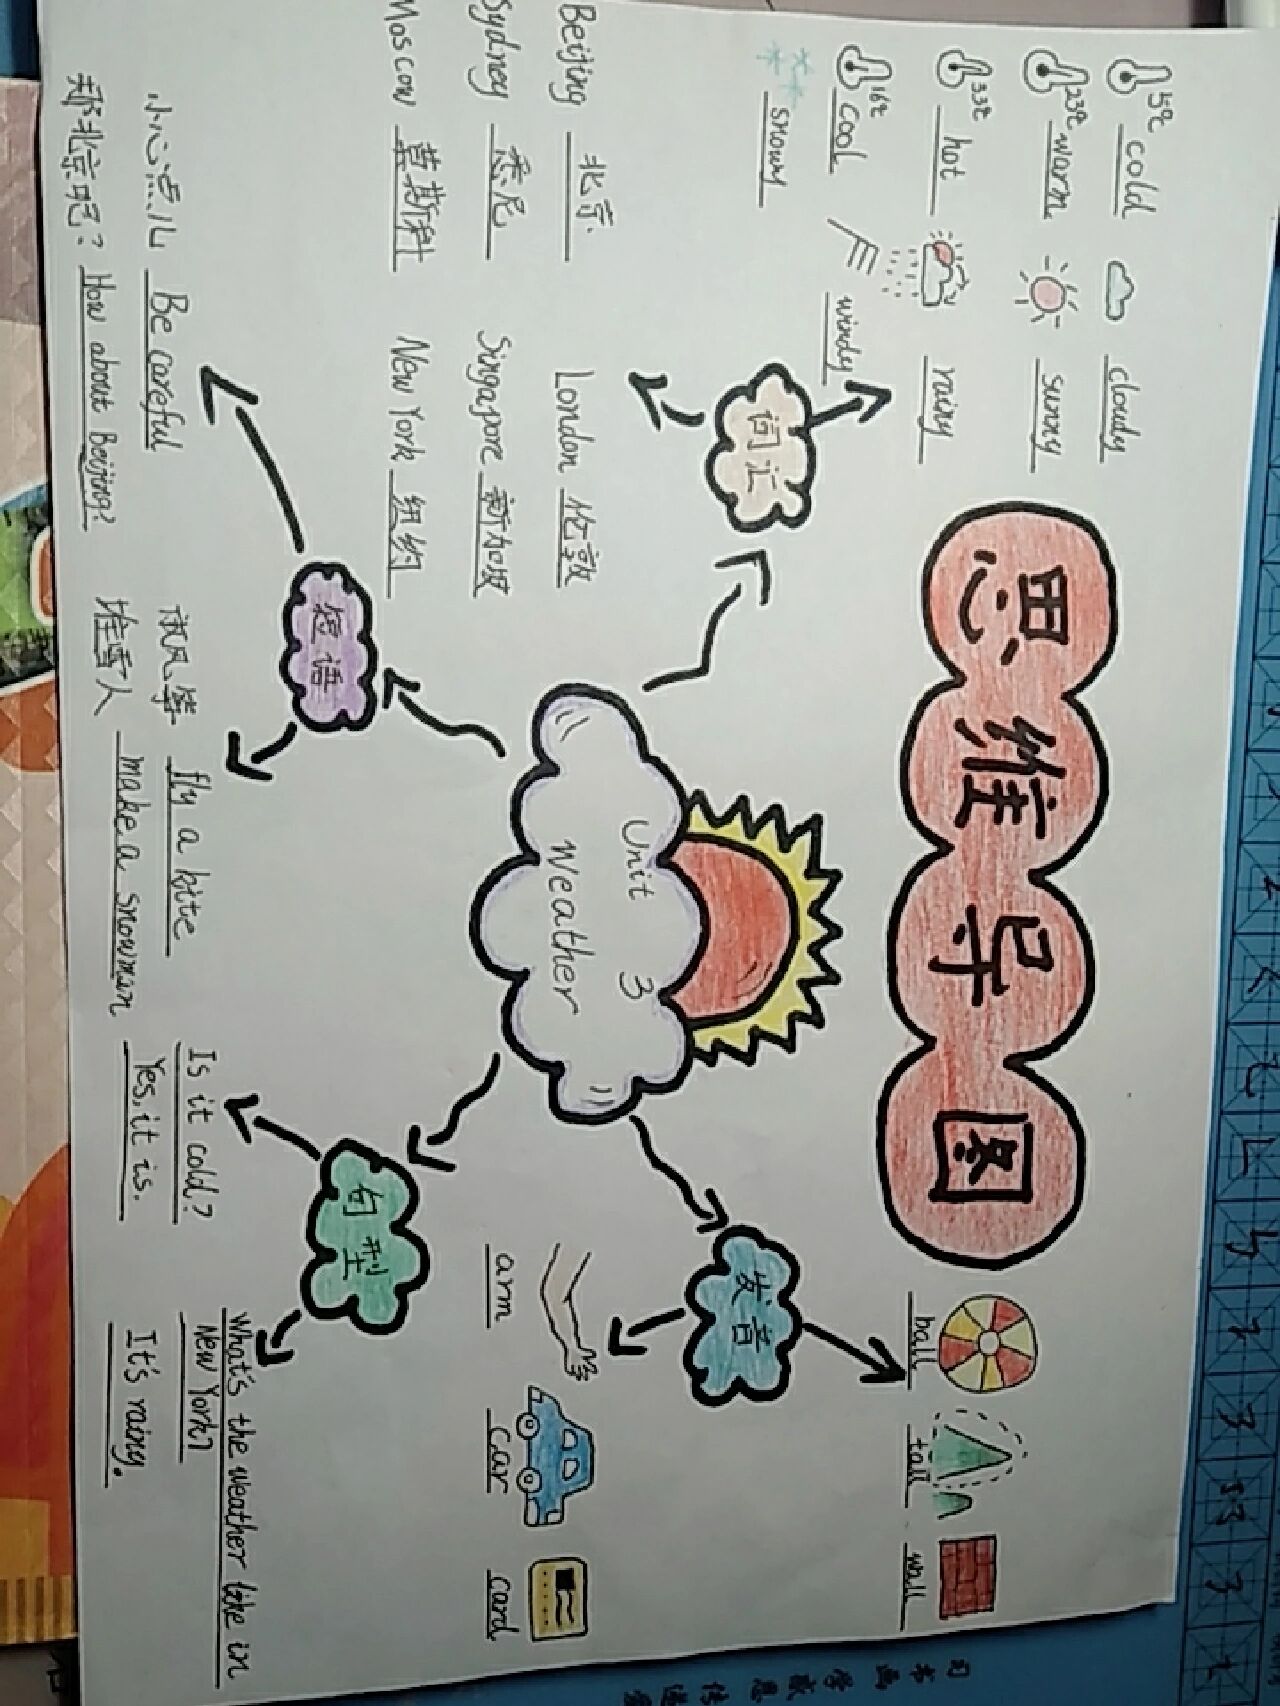 思维导图
15℃ cold
cloudy
23℃ warm
sunny
33℃ hot
rainy
16℃ cool
windy
snowy
词汇
Beijing 北京
London 伦敦
Sydney 悉尼
Singapore 新加坡
Moscow 莫斯科
New York 纽约
Unit 3
Weather
发音
ball
tall
wall
arm
car
card
短语
小心点儿 Be careful
放风筝 fly a kite
那北京呢? How about Beijing?
堆雪人 make a snowman
句型
Is it cold?
Yes, it is.
What's the weather like in
New York?
It's rainy.